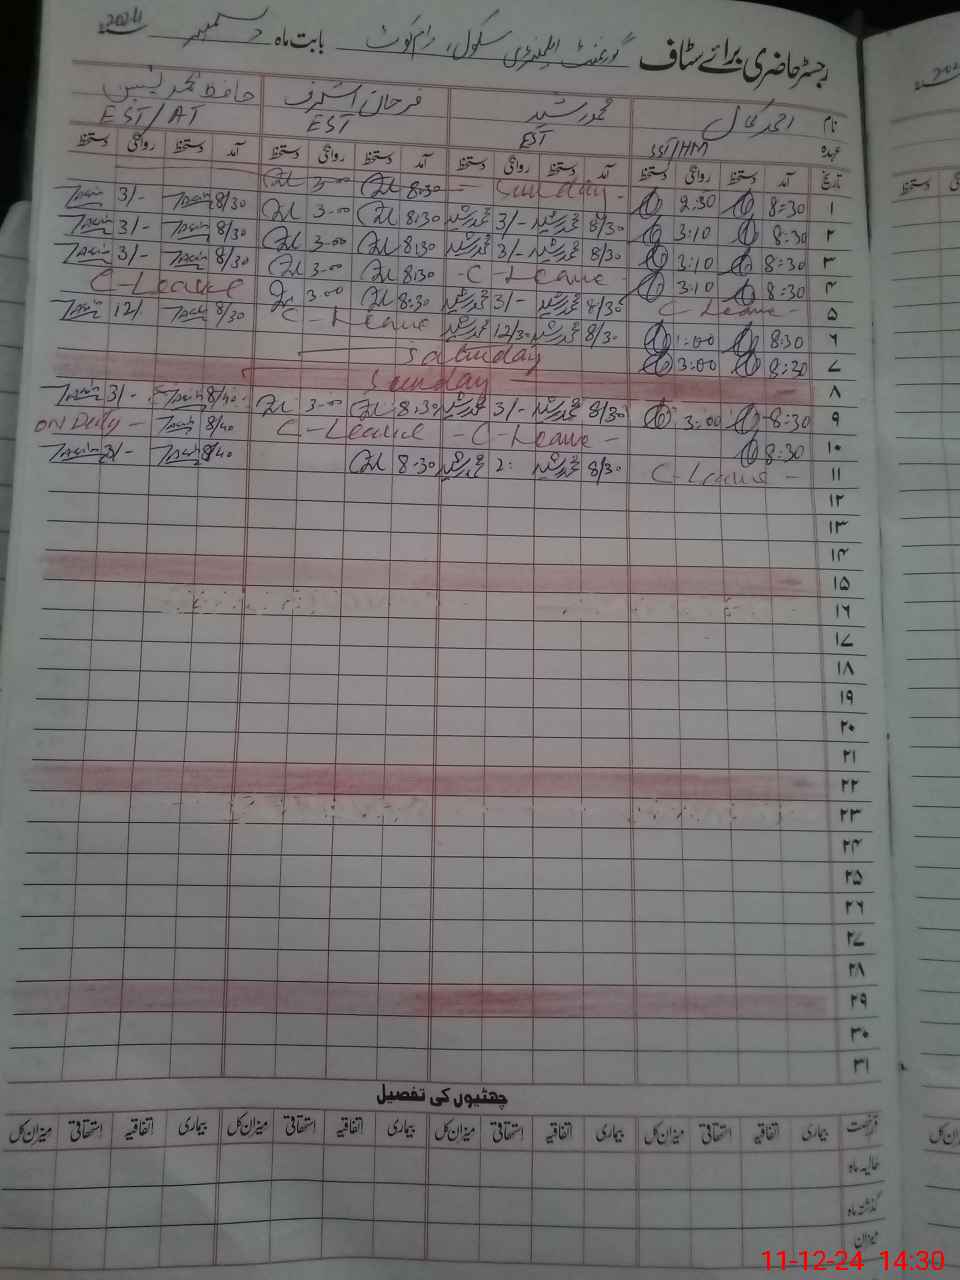 رجسٹر حاضری برائے سٹاف گورنمنٹ ایلیمنٹری سکول، رام کوٹ بابت ماہ دسمبر 2024
نام احمد کمال محمد رشید فرحان اشرف حافظ محمد یٰسین
عہدہ SST/HM EST EST EST/AT
تاریخ آمد دستخط روانگی دستخط آمد دستخط روانگی دستخط آمد دستخط روانگی دستخط آمد دستخط روانگی دستخط
۱ Sunday
۲ 8:30 2:30 8/30 3/- 8:30 3-00 8/30 3/-
۳ 8:30 3:10 8/30 3/- 8:30 3-00 8/30 3/-
۴ 8:30 3:10 - C - Leave - 8:30 3-00 8/30 3/-
۵ 8:30 3:10 8/30 3/- 8:30 3.00 C-Leave
۶ C - Leave - 8/30 12/30 C - Leave 8/30 12/
۷ 8:30 1:00 Saturday
۸ 8:20 3:00 Sunday
۹ 8:30 3:00 8/30 3/- 8:30 3-00 8/40 3/-
۱۰ 8:30 - C - Leave - C - Leave 8/40 ON Duty -
۱۱ C - Leave - 8/30 2: 8-30 8/40 3/-
۱۲
۱۳
۱۴
۱۵
۱۶
۱۷
۱۸
۱۹
۲۰
۲۱
۲۲
۲۳
۲۴
۲۵
۲۶
۲۷
۲۸
۲۹
۳۰
۳۱
چھٹیوں کی تفصیل
رخصت بیماری اتفاقیہ استحقاقی میزان کل بیماری اتفاقیہ استحقاقی میزان کل بیماری اتفاقیہ استحقاقی میزان کل بیماری اتفاقیہ استحقاقی میزان کل
حالیہ ماہ
گذشتہ ماہ
میزان
11-12-24 14:30